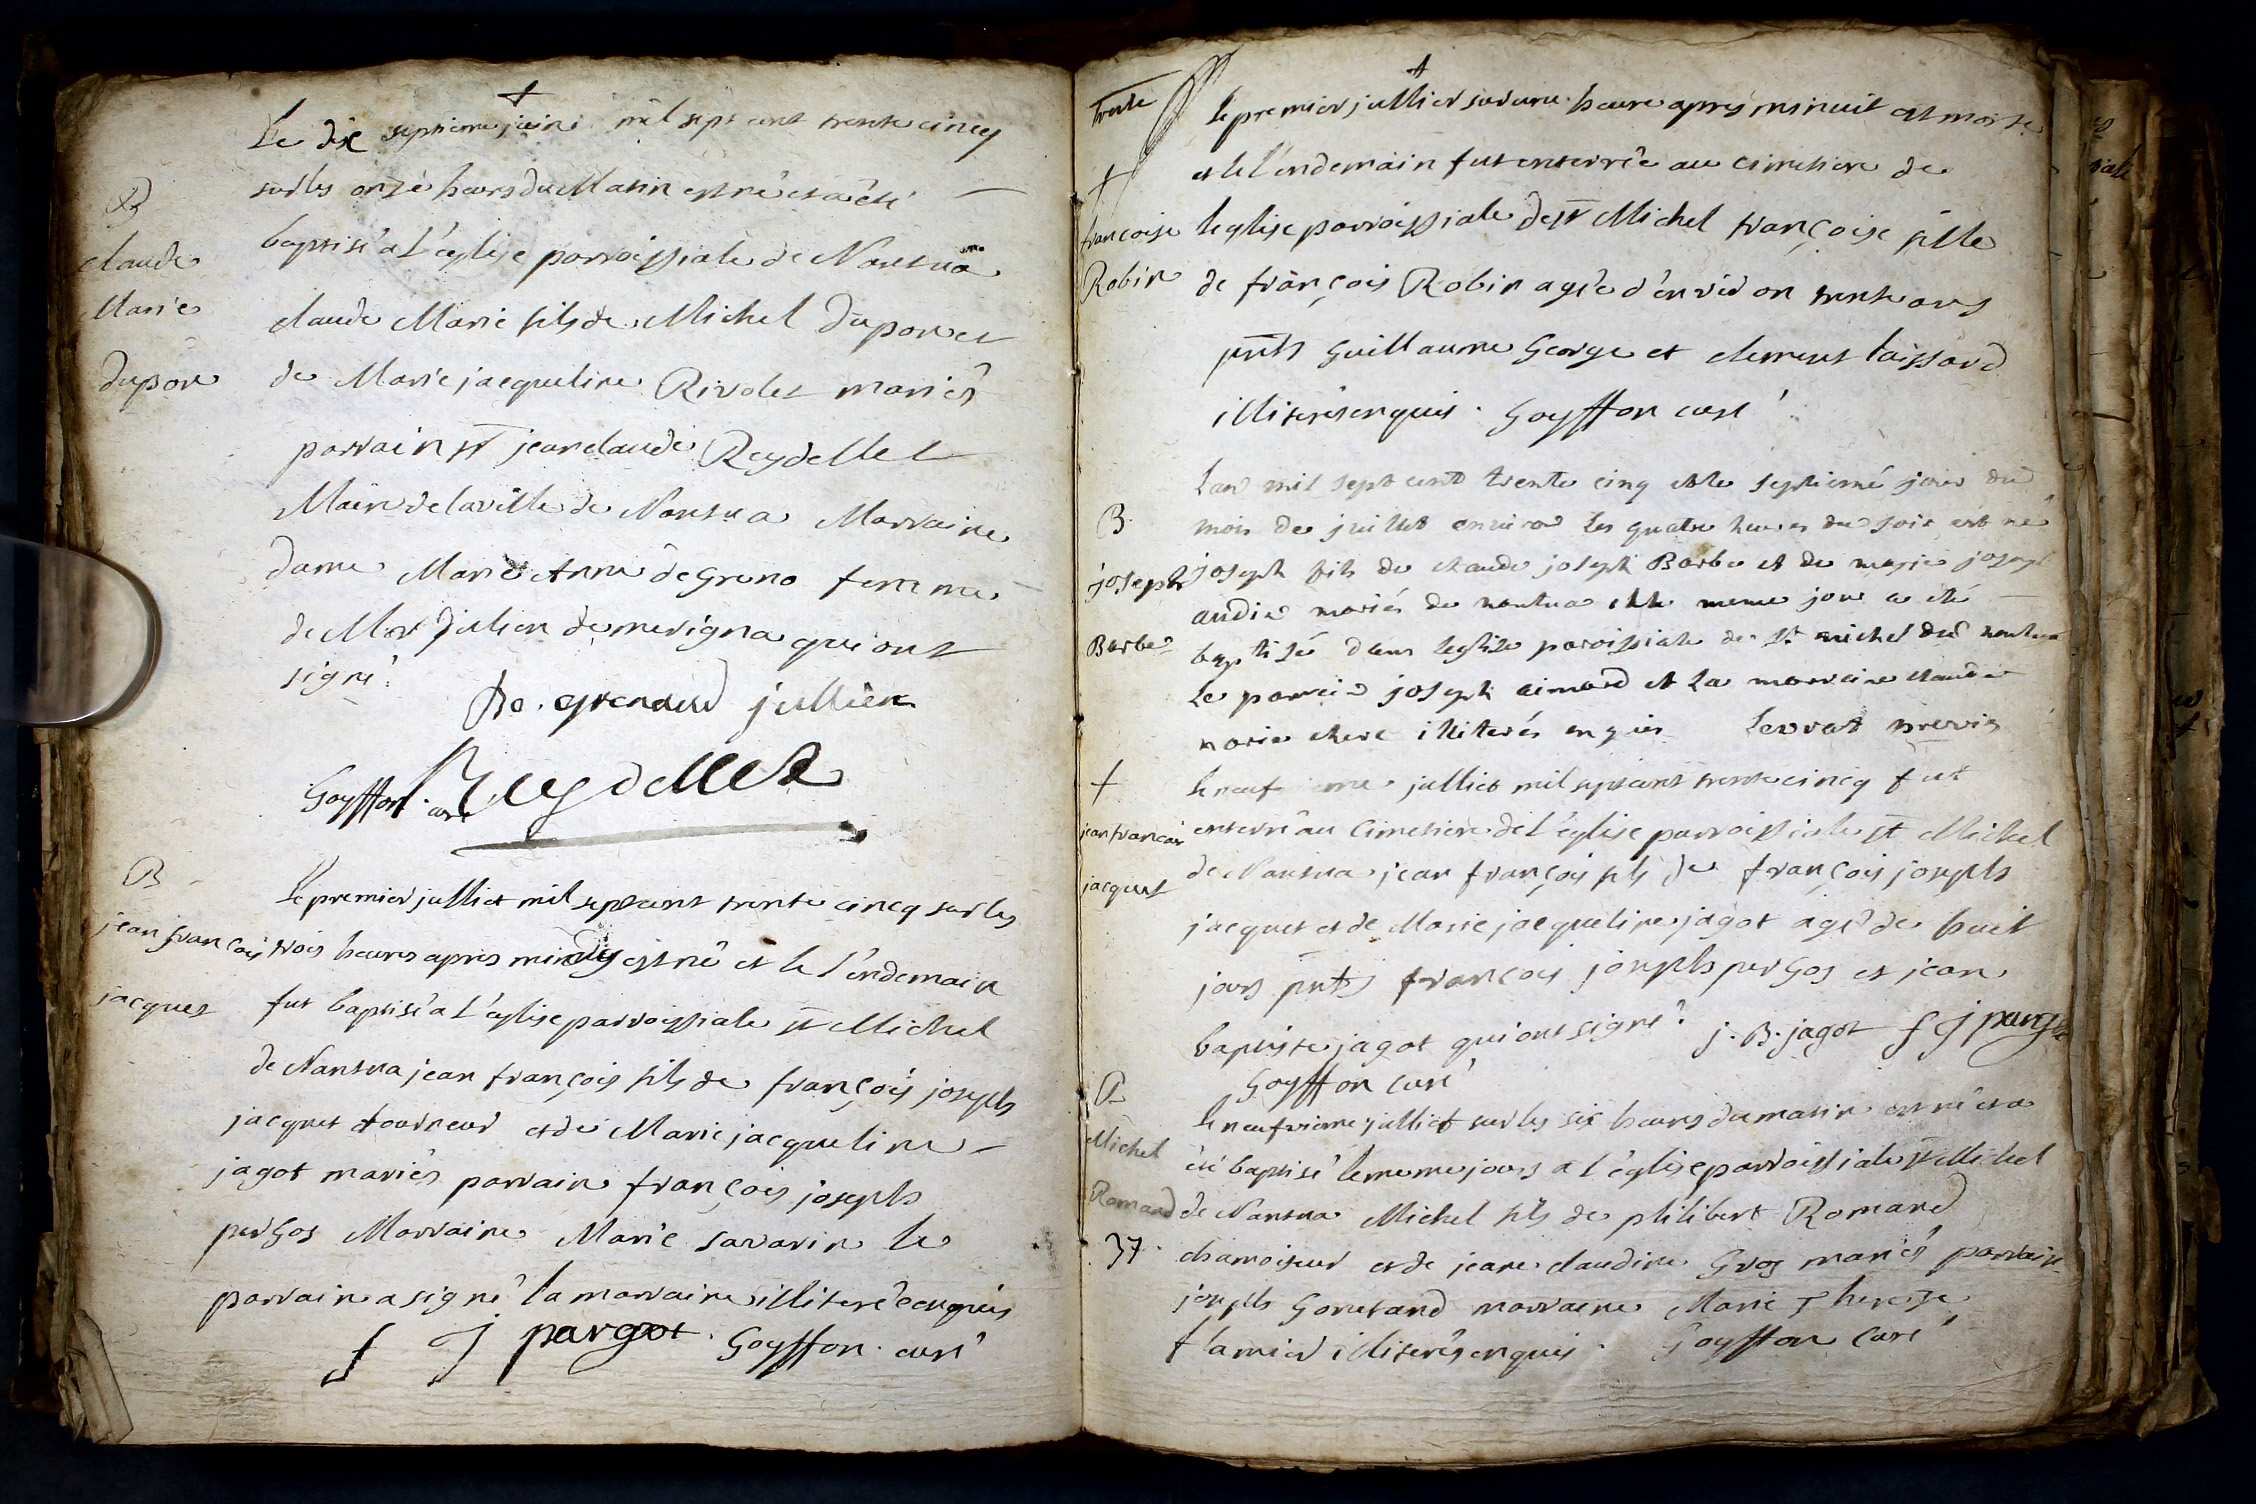 Le dix septieme juin mil sept cent trente cincq
sur les onze heures du Matin est né et a eté
B
baptisé a L'eglise parroissiale de Nantua
claude
Marie
dupon
claude Marie fils de Michel dupon et
de Marie jacqueline Rivolet mariés
parrain sr jean claude Reydellet
Maire de la ville de Nantua Marraine
dame Marie Anne de Greno femme
de Mr Julien de merigna qui ont
signé
De. grenaud jullien
Goyffon curé Reydellet
B
jean françois
jacquet
Le premier julliet mil sept cent trente cincq sur les
trois heures apres midy est né et le L'endemain
fut baptisé a L'eglise parroissiale st Michel
de Nantua jean françois fils de françois joseph
jacquet tourneur et de Marie jacqueline
jagot mariés parrain françois joseph
pergos Marraine Marie savarin le
parrain a signé la marraine illiterée enquis
f J pargot. Goyffon curé
trente
Le premier julliet sur une heure apres minuit est morte
et le L'endemain fut enterrée au cimetiere de
françoise
Robin
leglise parroissiale de st Michel françoise fille
de françois Robin agée d'environ trente ans
pnts Guillaume George et clement laissard
illiterés enquis. Goyffon curé
Lan mil sept cent trente cinq et le septieme jour du
B.
joseph
Barbe
mois de juillet environ les quatre heures du soir est né
joseph fils de claude joseph Barbe et de marie joseph
audier mariés de nantua et le meme jour a eté
baptisé dans leglise paroissiale de st michel dud nantua
Le parrain joseph aimard et la marraine claude
marie illiterés enquis Levrat
jean françois
jacquet
Le neuf julliet mil sept cent trente cincq fut
enterré au Cimetiere de L'eglise parroissiale st Michel
de Nantua jean françois fils de françois joseph
jacquet et de Marie jacqueline jagot agé de huit
jours pnts françois joseph pergos et jean
baptiste jagot qui ont signé. j. B. jagot f J pargot
Goyffon curé
B
Michel
Romand
37.
Le neufvieme julliet sur les six heures du matin est né et a
eté baptisé le meme jours a L'eglise parroissiale st Michel
de Nantua Michel fils de philibert Romand
chamoiseur et de jeane claudine Gros mariés parrain
joseph Gonetand marraine Marie Therese
l'amier illiterés enquis. Goyffon Curé